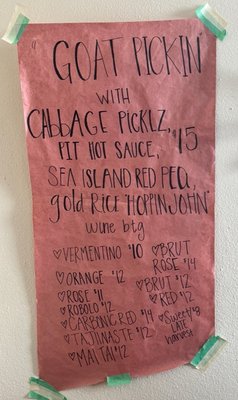 "GOAT PICKIN'
WITH
CABBAGE PICKLZ, $15
PIT HOT SAUCE,
SEA ISLAND RED PEA,
gold Rice "HOPPIN JOHN"
wine btg
♡VERMENTINO $10
♡ORANGE $12
♡ROSE $11
♡ROBOLO $12
♡CARBONIC RED $14
♡TAJINASTE $12
♡MAI TAI $12
♡BRUT ROSE $14
♡BRUT $12
♡RED $12
LATE
harvest